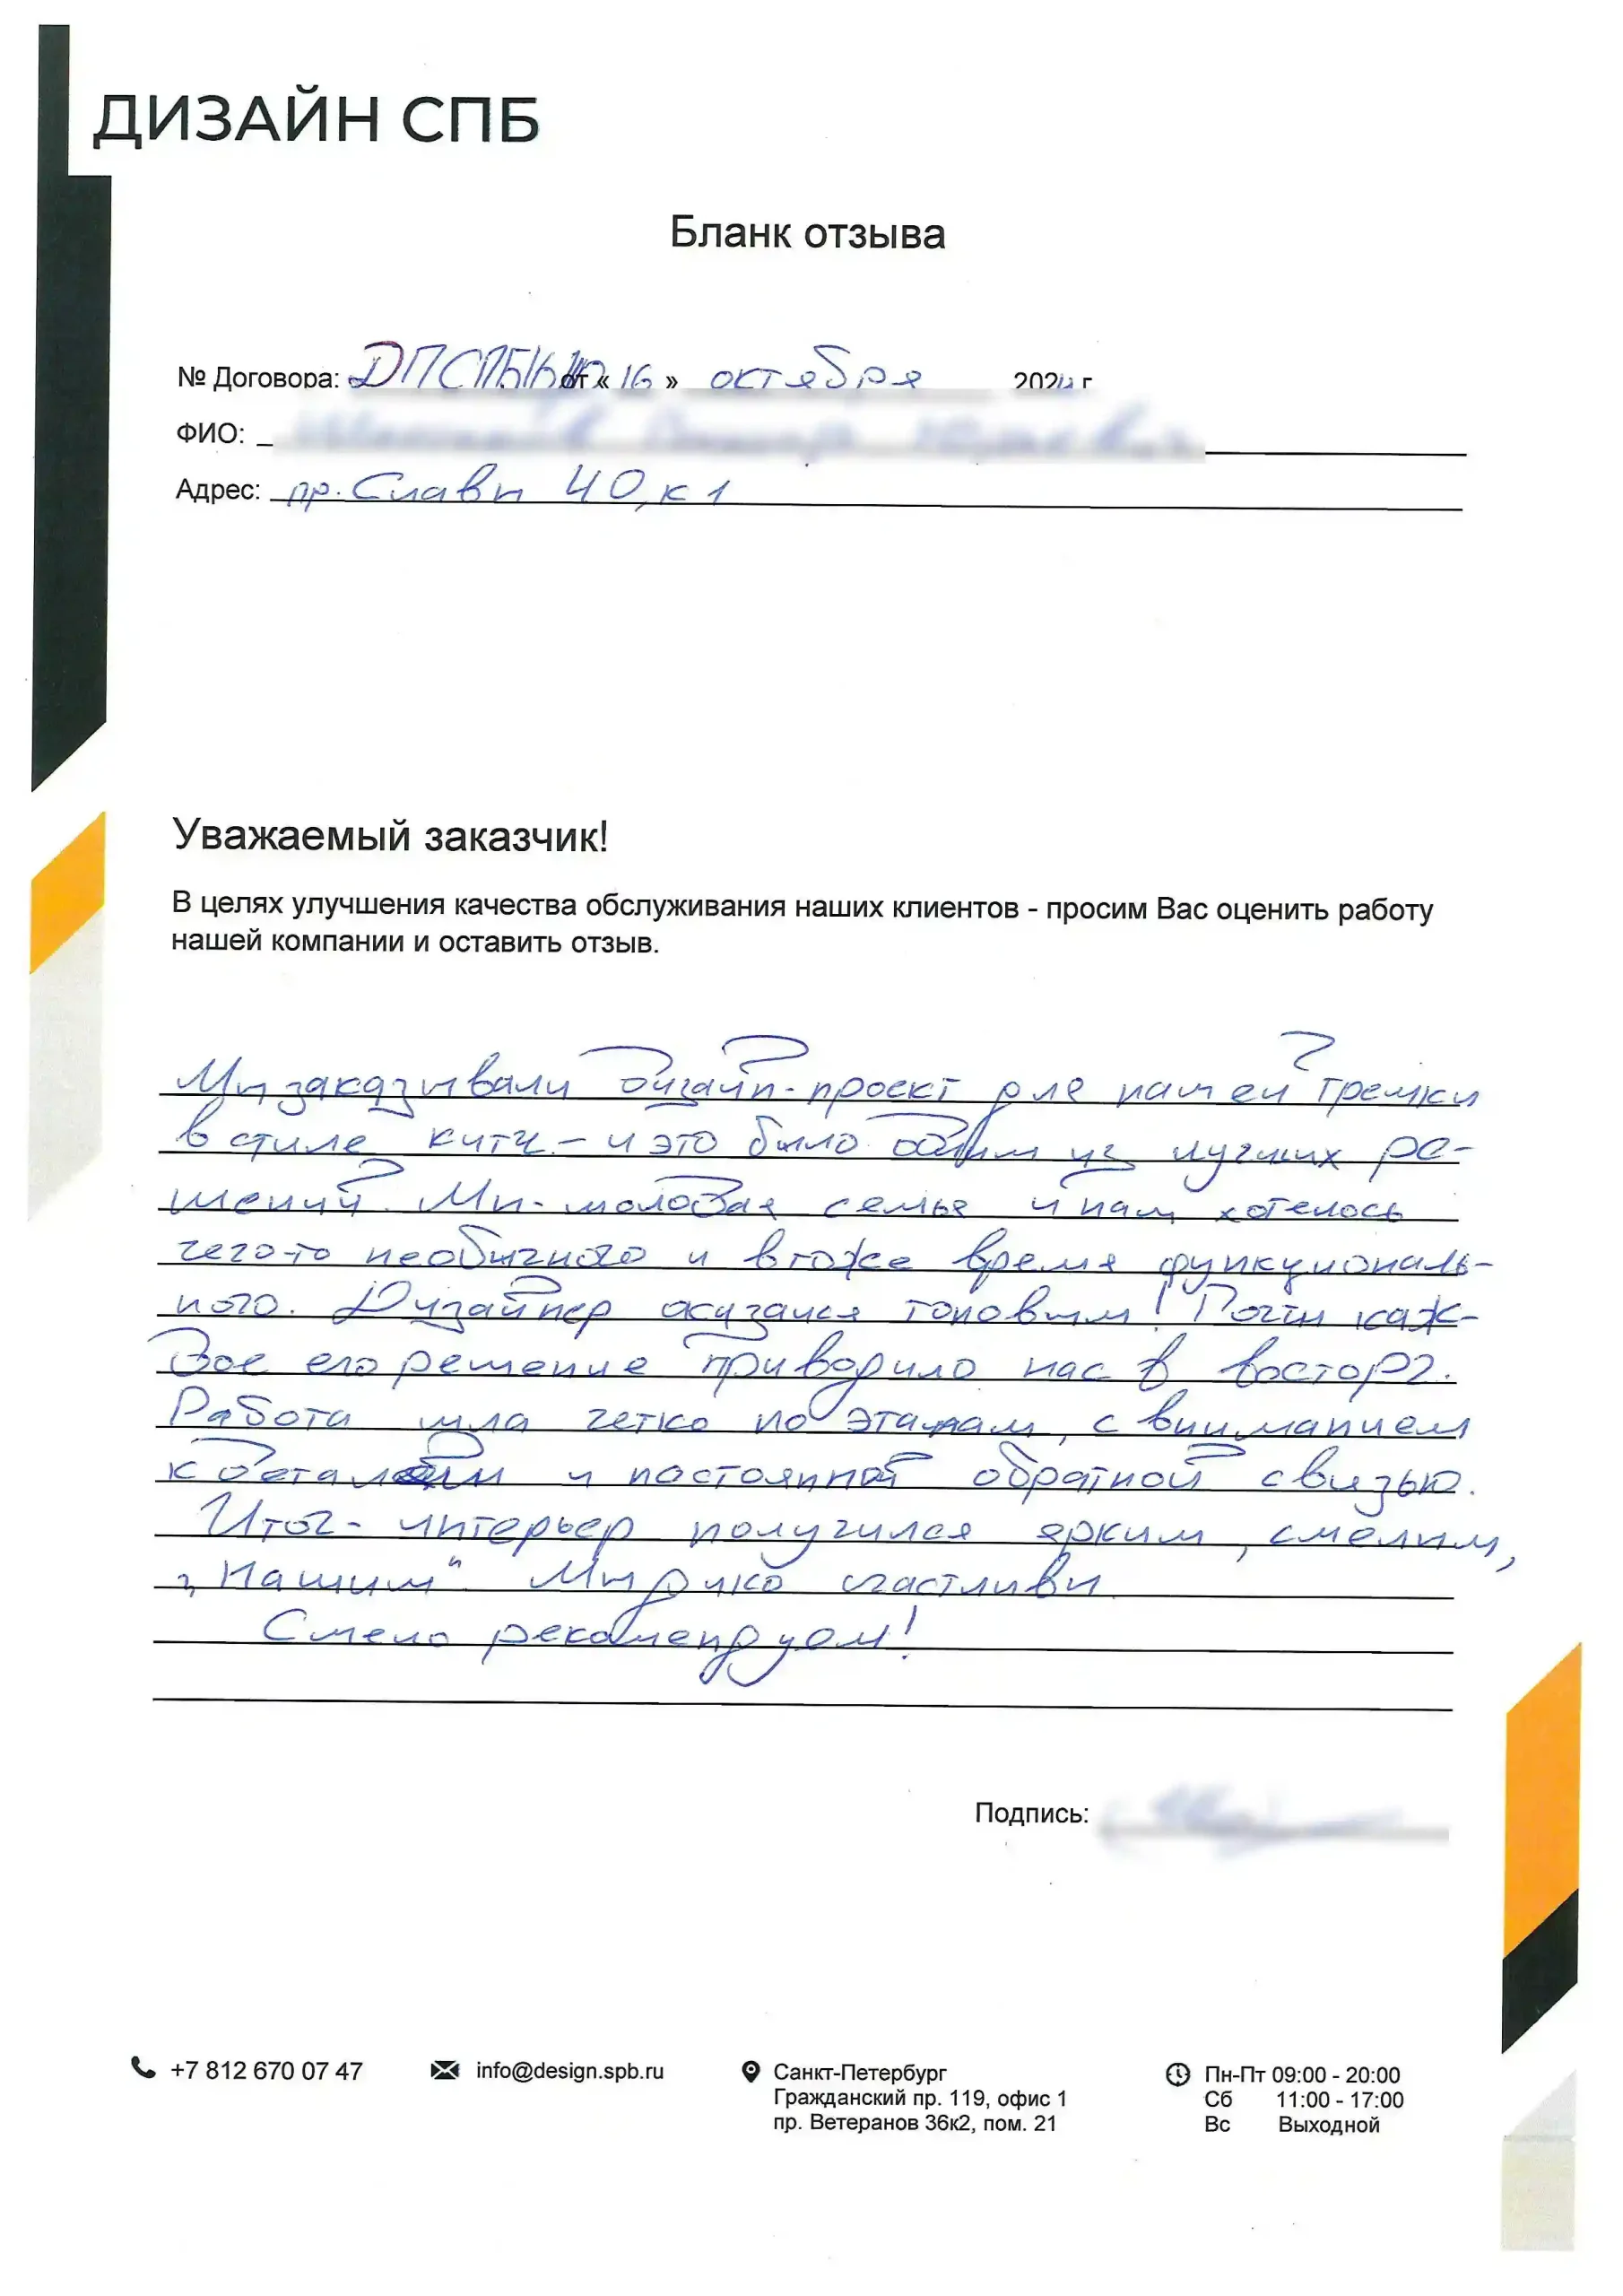 ДИЗАЙН СПБ
Бланк отзыва
№ Договора: от « 16 » октября 2024 г
ФИО:
Адрес: пр. Славы 40, к 1
Уважаемый заказчик!
В целях улучшения качества обслуживания наших клиентов - просим Вас оценить работу
нашей компании и оставить отзыв.
Мы заказывали дизайн-проект для нашей трёшки
в стиле китч - и это было одним из лучших ре-
шений. Мы - молодая семья и нам хотелось
чего-то необычного и в тоже время функциональ-
ного. Дизайнер оказался топовым! Почти каж-
дое его решение приводило нас в восторг.
Работа шла четко по этапам, с вниманием
к деталям и постоянной обратной связью.
Итог - интерьер получился ярким, смелым,
„нашим“ Мы дико счастливы
Смело рекомендуем!
Подпись:
+7 812 670 07 47
info@design.spb.ru
Санкт-Петербург
Гражданский пр. 119, офис 1
пр. Ветеранов 36к2, пом. 21
Пн-Пт 09:00 - 20:00
Сб 11:00 - 17:00
Вс Выходной